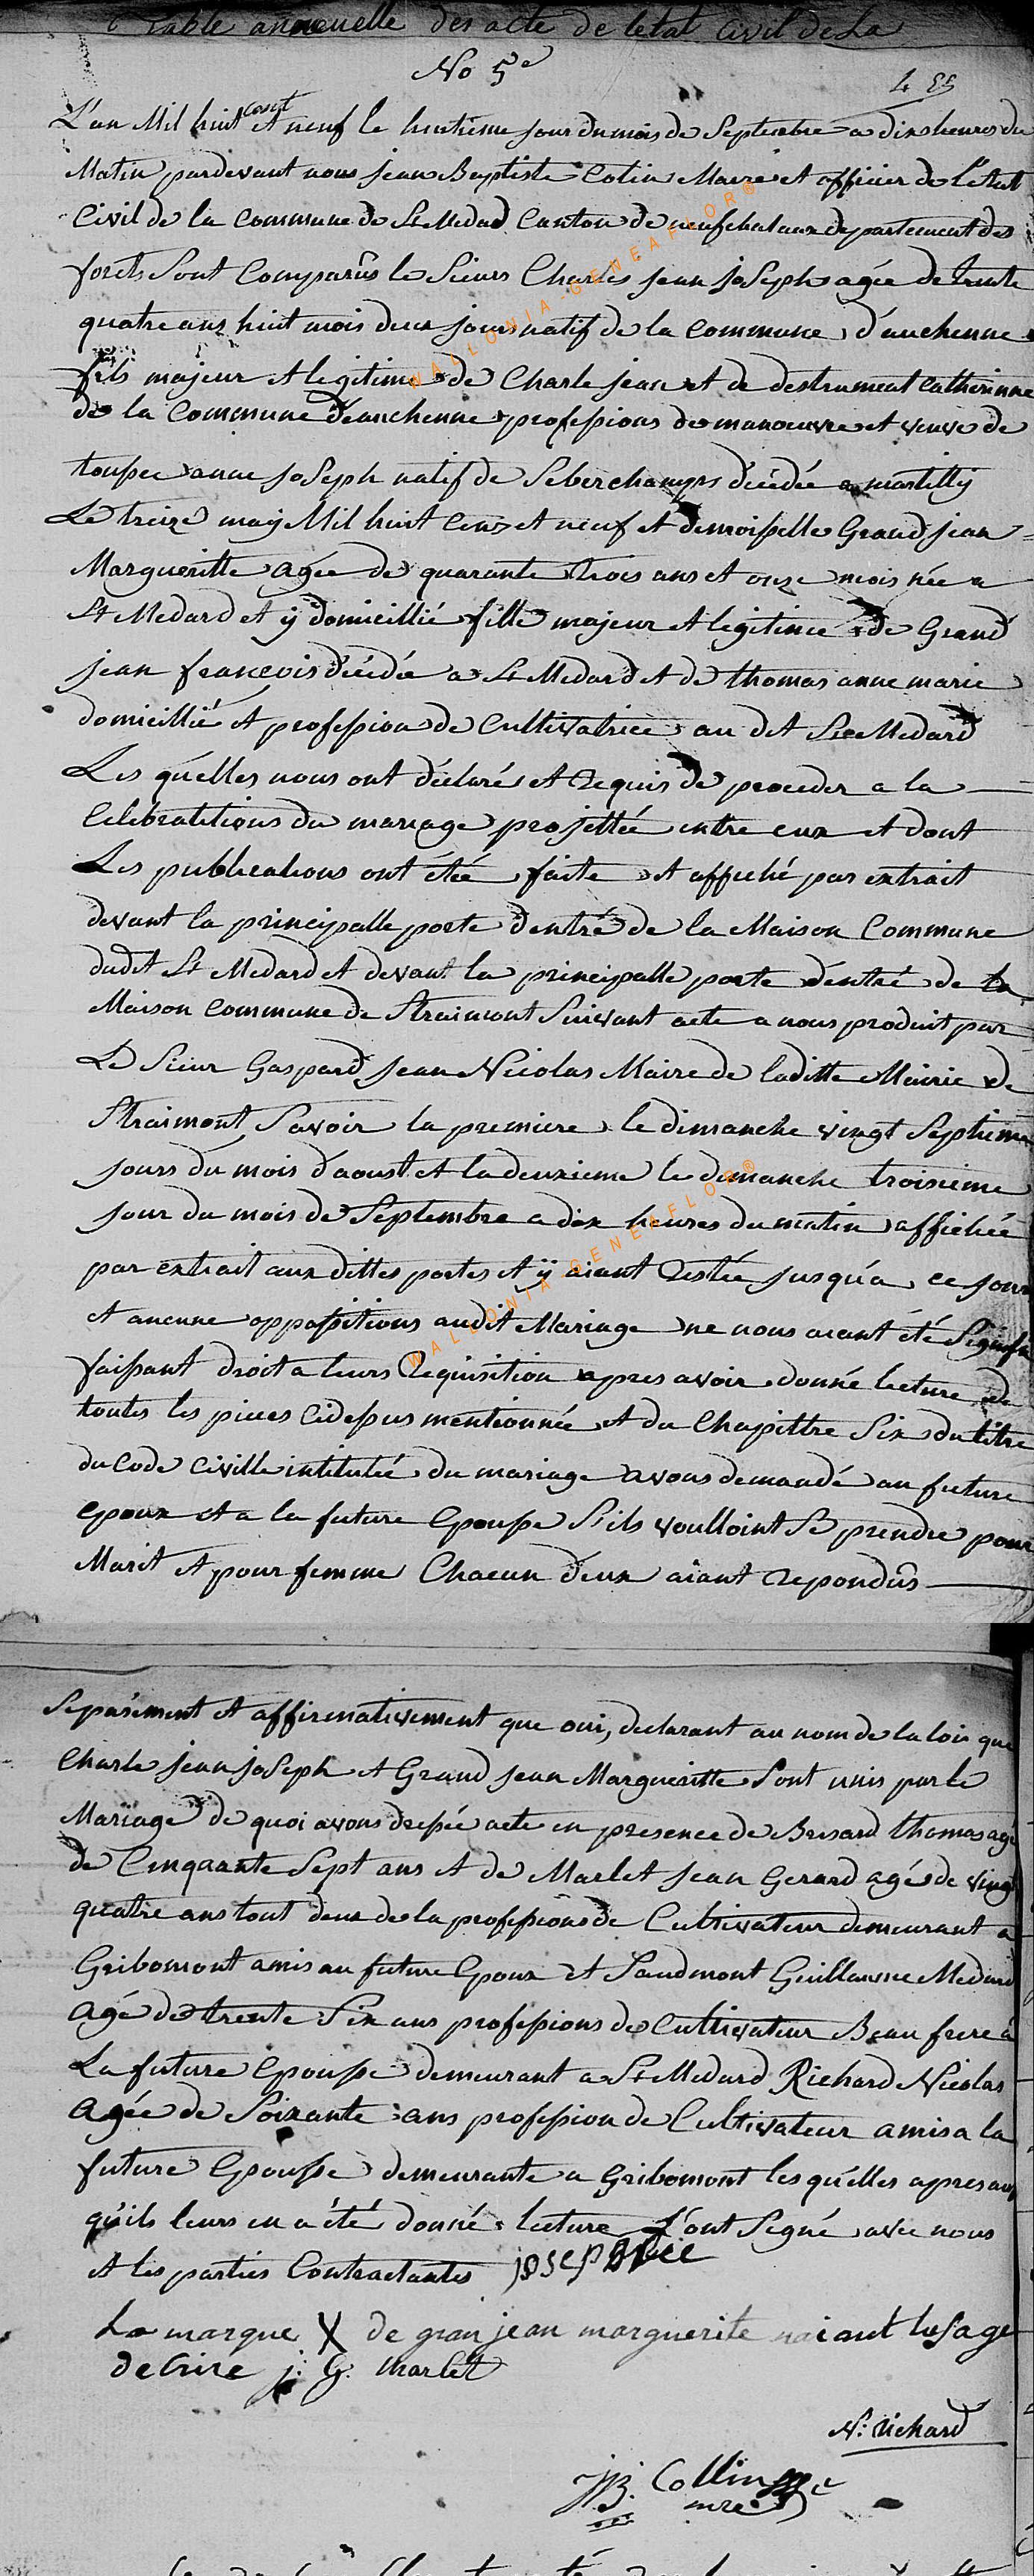 Table annuelle des acte de letat Civil de La
No 5e
4
L'an Mil huit cent et neuf le huitieme jour du mois de Septembre a dix heures du
Matin pardevant nous jean Baptiste Colin Maire et officier de l'Etat
Civil de la Commune de St Medad Canton de neufchataux departement des
forets Sont Comparûs le Sieurs Charles jean joSeph agée de trente
quatre ans huit mois deux jours natif de la Commune d'auchenne
fils majeur et legitime de Charle jean et de destrument Catherinne
de la Commune d'auchenne professions de manoeuvre et veuve de
toupee anne joSeph natif de Seberchamps décédée a martilly
Le treize may Mil huit Cens et neuf et demoiselle Grand jean
Margueritte agée de quarante trois ans et onze mois née a
St Medard et ÿ domicillié fille majeur et legitimé de Grand
jean francois décédée a St Medard et de thomas anne marie
domicillié et profession de Cultivatrice au dt St Medard
Les quélles nous ont déclaré et requis de proceder a la
Celebratitions du mariage projettée entre eux et dont
Les publications ont étée faite et affiché par extrait
devant la principalle porte dentré de la Maison Commune
dudt St Medard et devant la principalle porte dentré de la
Maison Commune de Straimont Suivant acte a nous produit par
Le Sieur Gaspard jean Nicolas Maire de laditte Mairie de
Straimont Savoir la premiere le dimanche vingt Septieme
jours du mois d'aoust et la deuxieme le dimanche troisieme
jour du mois de Septembre a dix heures du matin affichée
par extrait aux dittes portes et ÿ aiant restée jusqu'a ce jour
et aucune oppositions audit Mariage ne nous aiant été Signifi
faissant droit a leurs Requisition apres avoir donné lecture de
toutes les pieces cidessus mentionnée et du Chapittre Six du titre
du Code Civille intitulée du mariage avons demandé au future
epoux et a la future Epouse S'ils voulloint Se prendre pour
Marit et pour femme Chacun d'eux aiant repondûs
Separément et affirmativement que oui, declarant au nom de la loi que
Charle jean joSeph et Grand jean Margueritte Sont unis par le
Mariage de quoi avons dressée acte en presence de Brisard thomas agé
de Cinquante Sept ans et de Marlet jean Gerard agés de vingt
quatre ans tout deux de la professions de Cultivateur demeurant a
Gribomont amis au future Epoux et Saudmont Guillaume Medard
agé de trente Six ans professions de Cultivateur Beau frere a
La future Epouse demeurant a St Medard Richard Nicolas
agée de Soixante ans profession de Cultivateur amis a la
future Epouse demeurante a Gribomont les quélles apres
qu'ils leurs en a été donné lecture L'ont Segné avec nous
et les parties Contractantes joseph
La marque X de gran jean marguerite naiant lusage
decrire j: G: marlet
N: richard
JB Collin
mre
WALLONIA-GENEAFLOR®
WALLONIA-GENEAFLOR®